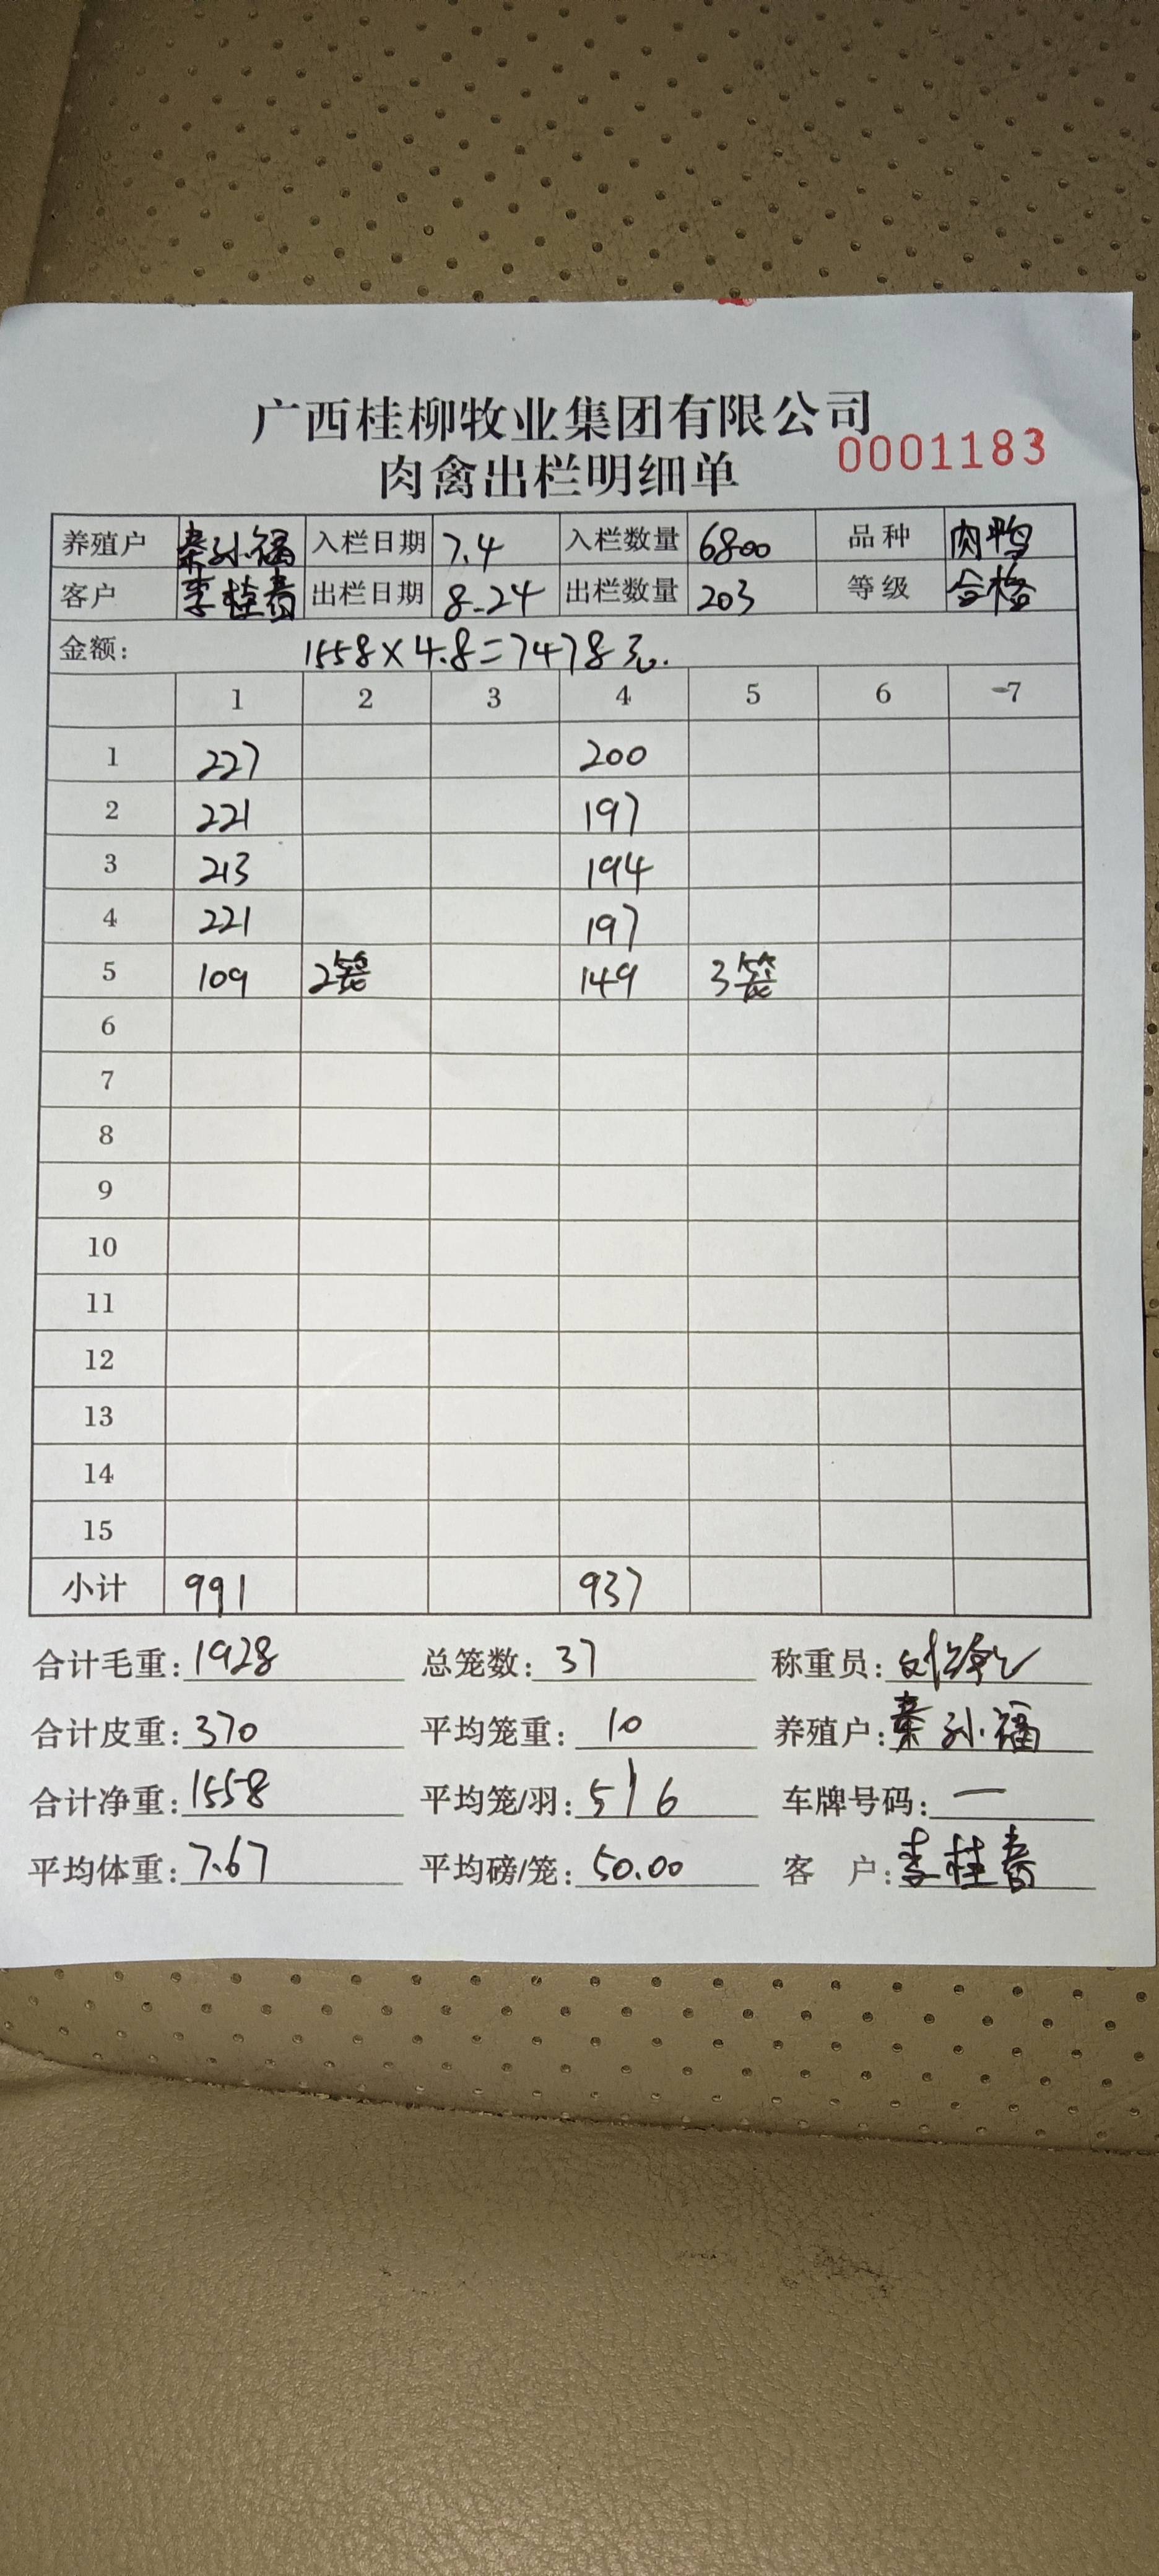 广西桂柳牧业集团有限公司
肉禽出栏明细单 0001183
养殖户 秦孙福 入栏日期 7.4 入栏数量 6800 品种 肉鸭
客户 李桂春 出栏日期 8.24 出栏数量 203 等级 合格
金额: 1558×4.8=7478元.
1 2 3 4 5 6 7
1 227 200
2 221 197
3 213 194
4 221 197
5 109 2笼 149 3笼
6
7
8
9
10
11
12
13
14
15
小计 991 937
合计毛重: 1928 总笼数: 37 称重员:
合计皮重: 370 平均笼重: 10 养殖户: 秦孙福
合计净重: 1558 平均笼/羽: 5/6 车牌号码: —
平均体重: 7.67 平均磅/笼: 50.00 客户: 李桂春